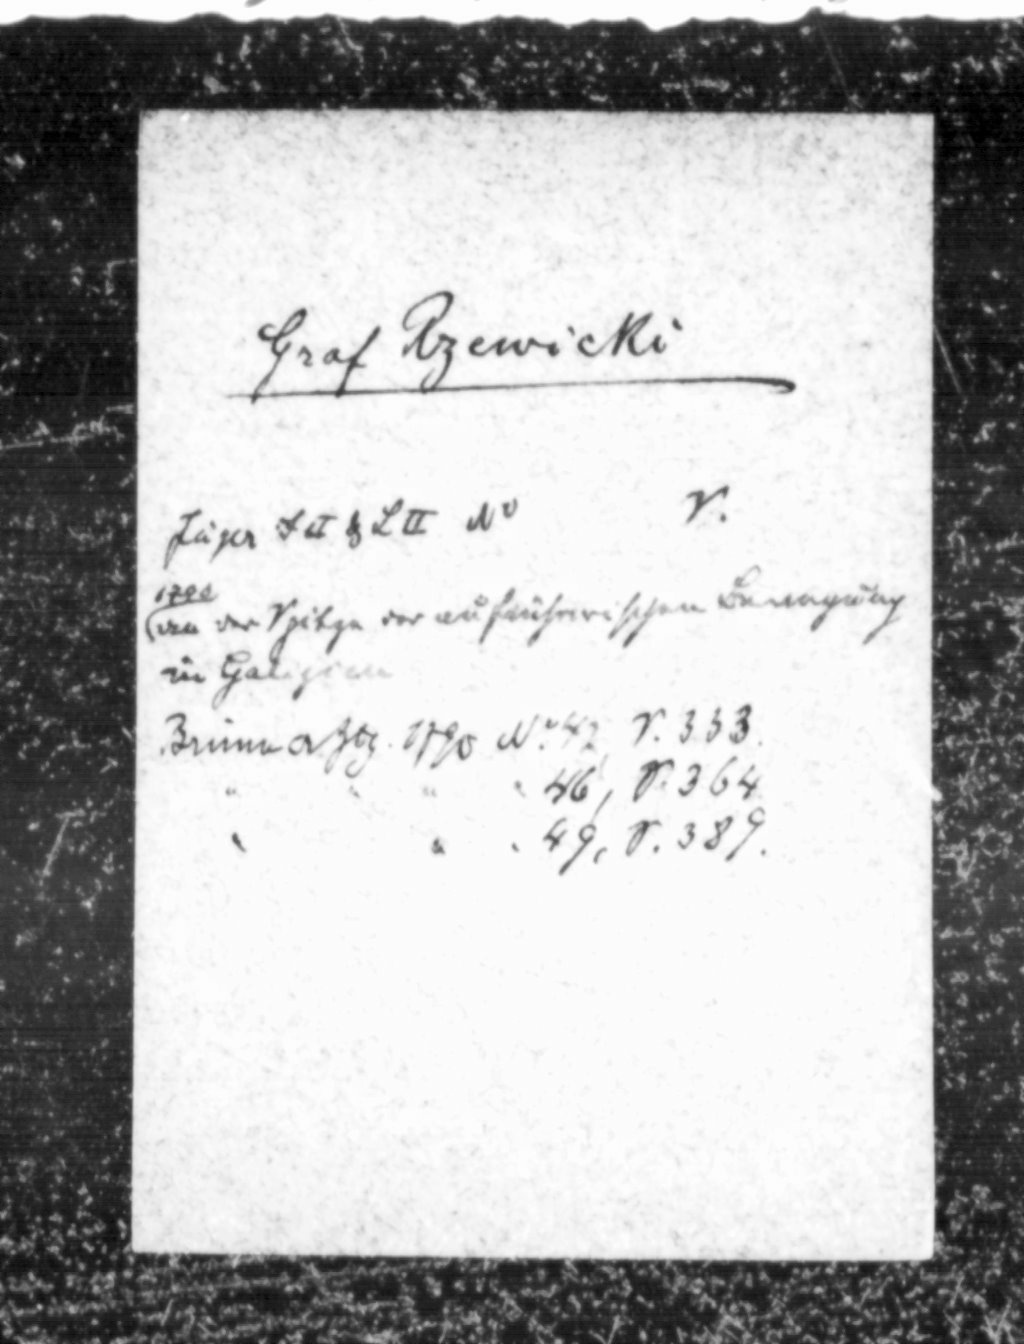 Graf Rzewicki
Jäger L II & L II No S.
1790
(an der Spitze der aufrührerischen Bewegung
in Galizien
Brünner Ztg. 1790 No. 42, S. 333.
" " " " 46, S. 364
" " " 49, S. 389.